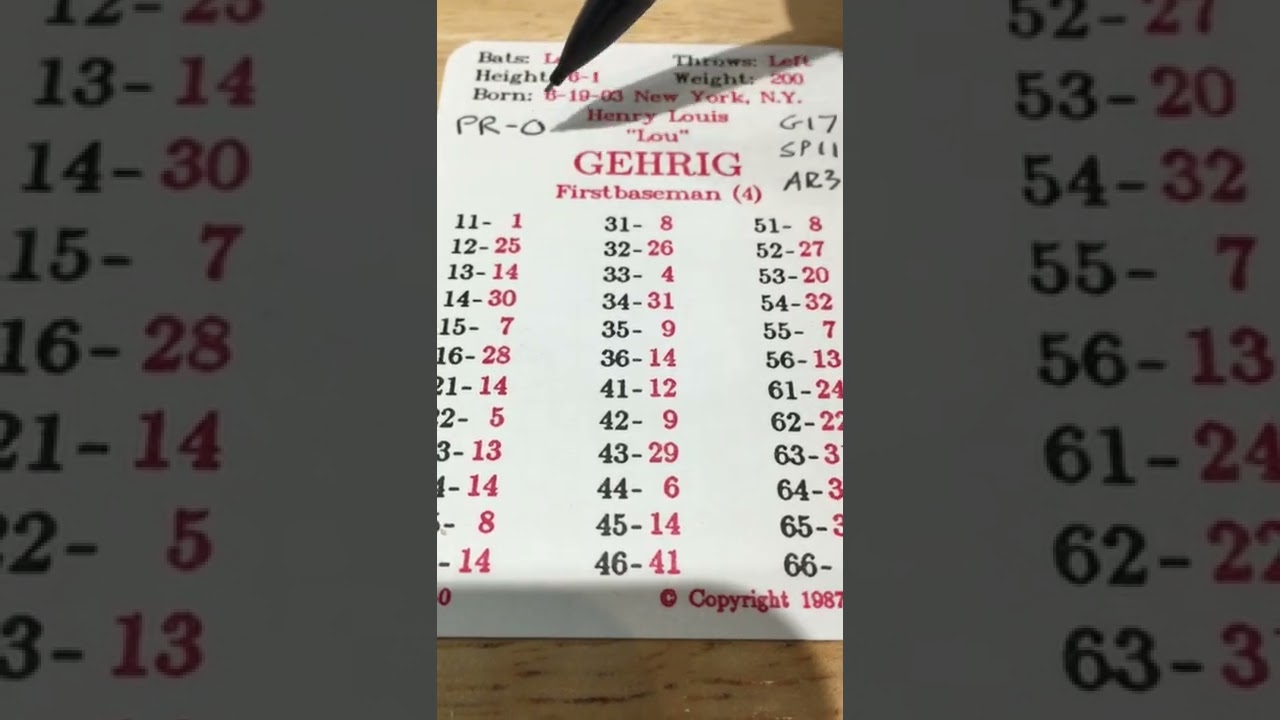 Bats: Throws: Left
Height: 6-1 Weight: 200
Born: 6-19-03 New York, N.Y.
Henry Louis
PR-O "Lou" G17
GEHRIG SP11
Firstbaseman (4) AR3
11- 1 31- 8 51- 8
12-25 32-26 52-27
13-14 33- 4 53-20
14-30 34-31 54-32
15- 7 35- 9 55- 7
16-28 36-14 56-13
21-14 41-12 61-24
2- 5 42- 9 62-22
3-13 43-29 63-3
4-14 44- 6 64-3
- 8 45-14 65-3
-14 46-41 66-
0 © Copyright 1987